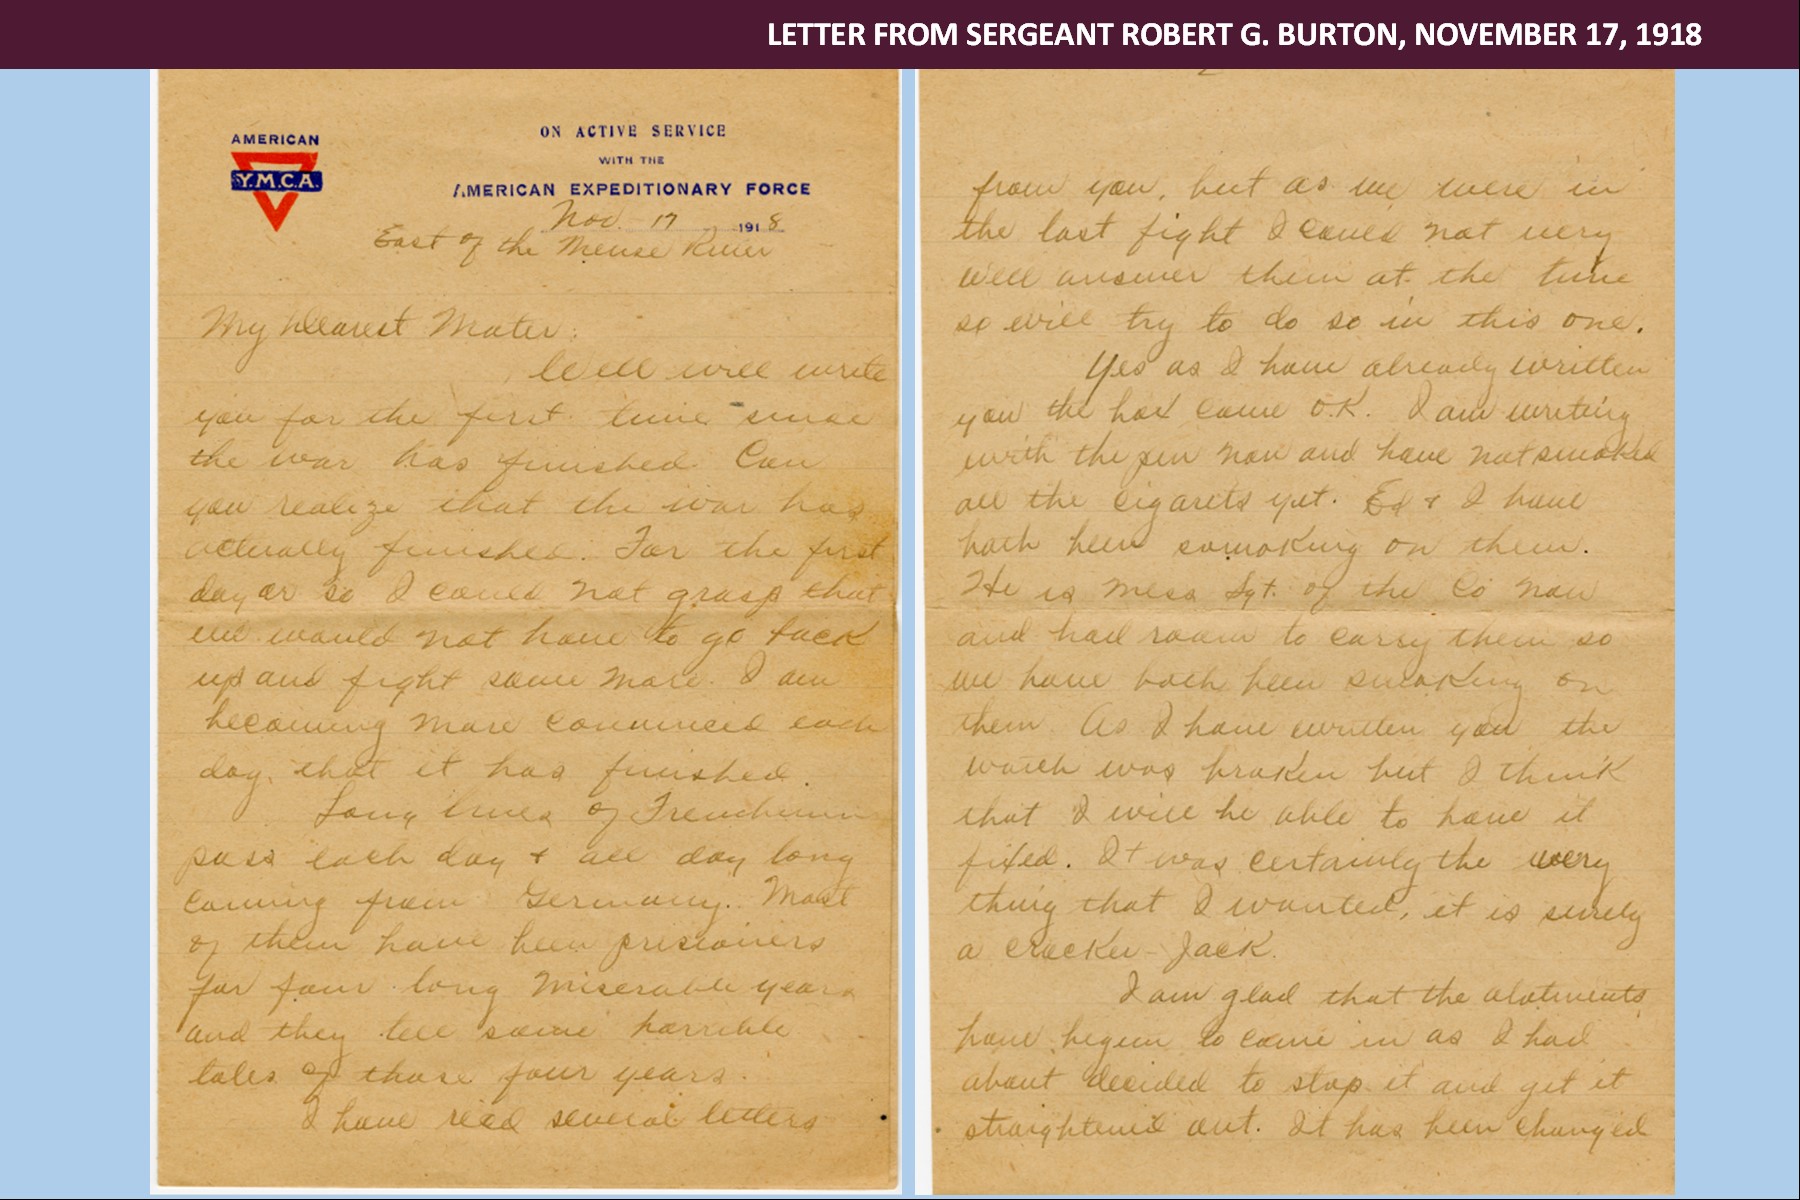 LETTER FROM SERGEANT ROBERT G. BURTON, NOVEMBER 17, 1918
AMERICAN
Y.M.C.A.
ON ACTIVE SERVICE
WITH THE
AMERICAN EXPEDITIONARY FORCE
Nov. 17 1918
East of the Meuse River
My Dearest Mater:
Well will write
you for the first time since
the war has finished. Can
you realize that the war has
actually finished. For the first
day or so I could not grasp that
we would not have to go back
up and fight some more. I am
becoming more convinced each
day that it has finished.
Long lines of Frenchmen
pass each day + all day long
coming from Germany. Most
of them have been prisioners
for four long miserable years
and they tell some horrible
tales of those four years.
I have recd several letters
2
from you, but as we were in
the last fight I could not very
well answer them at the time
so will try to do so in this one.
Yes as I have already written
you the box came O.K. I am writing
with the pen now and have not smoked
all the cigarets yet. Ed + I have
both been somoking on them.
He is mess Sgt. of the Co now
and had room to carry them so
we have both been smoking on
them. As I have written you the
watch was broken but I think
that I will be able to have it
fixed. It was certainly the very
thing that I wanted, it is surely
a cracker-Jack.
I am glad that the alotments
have begun to come in as I had
about decided to stop it and get it
straightened out. It has been changed